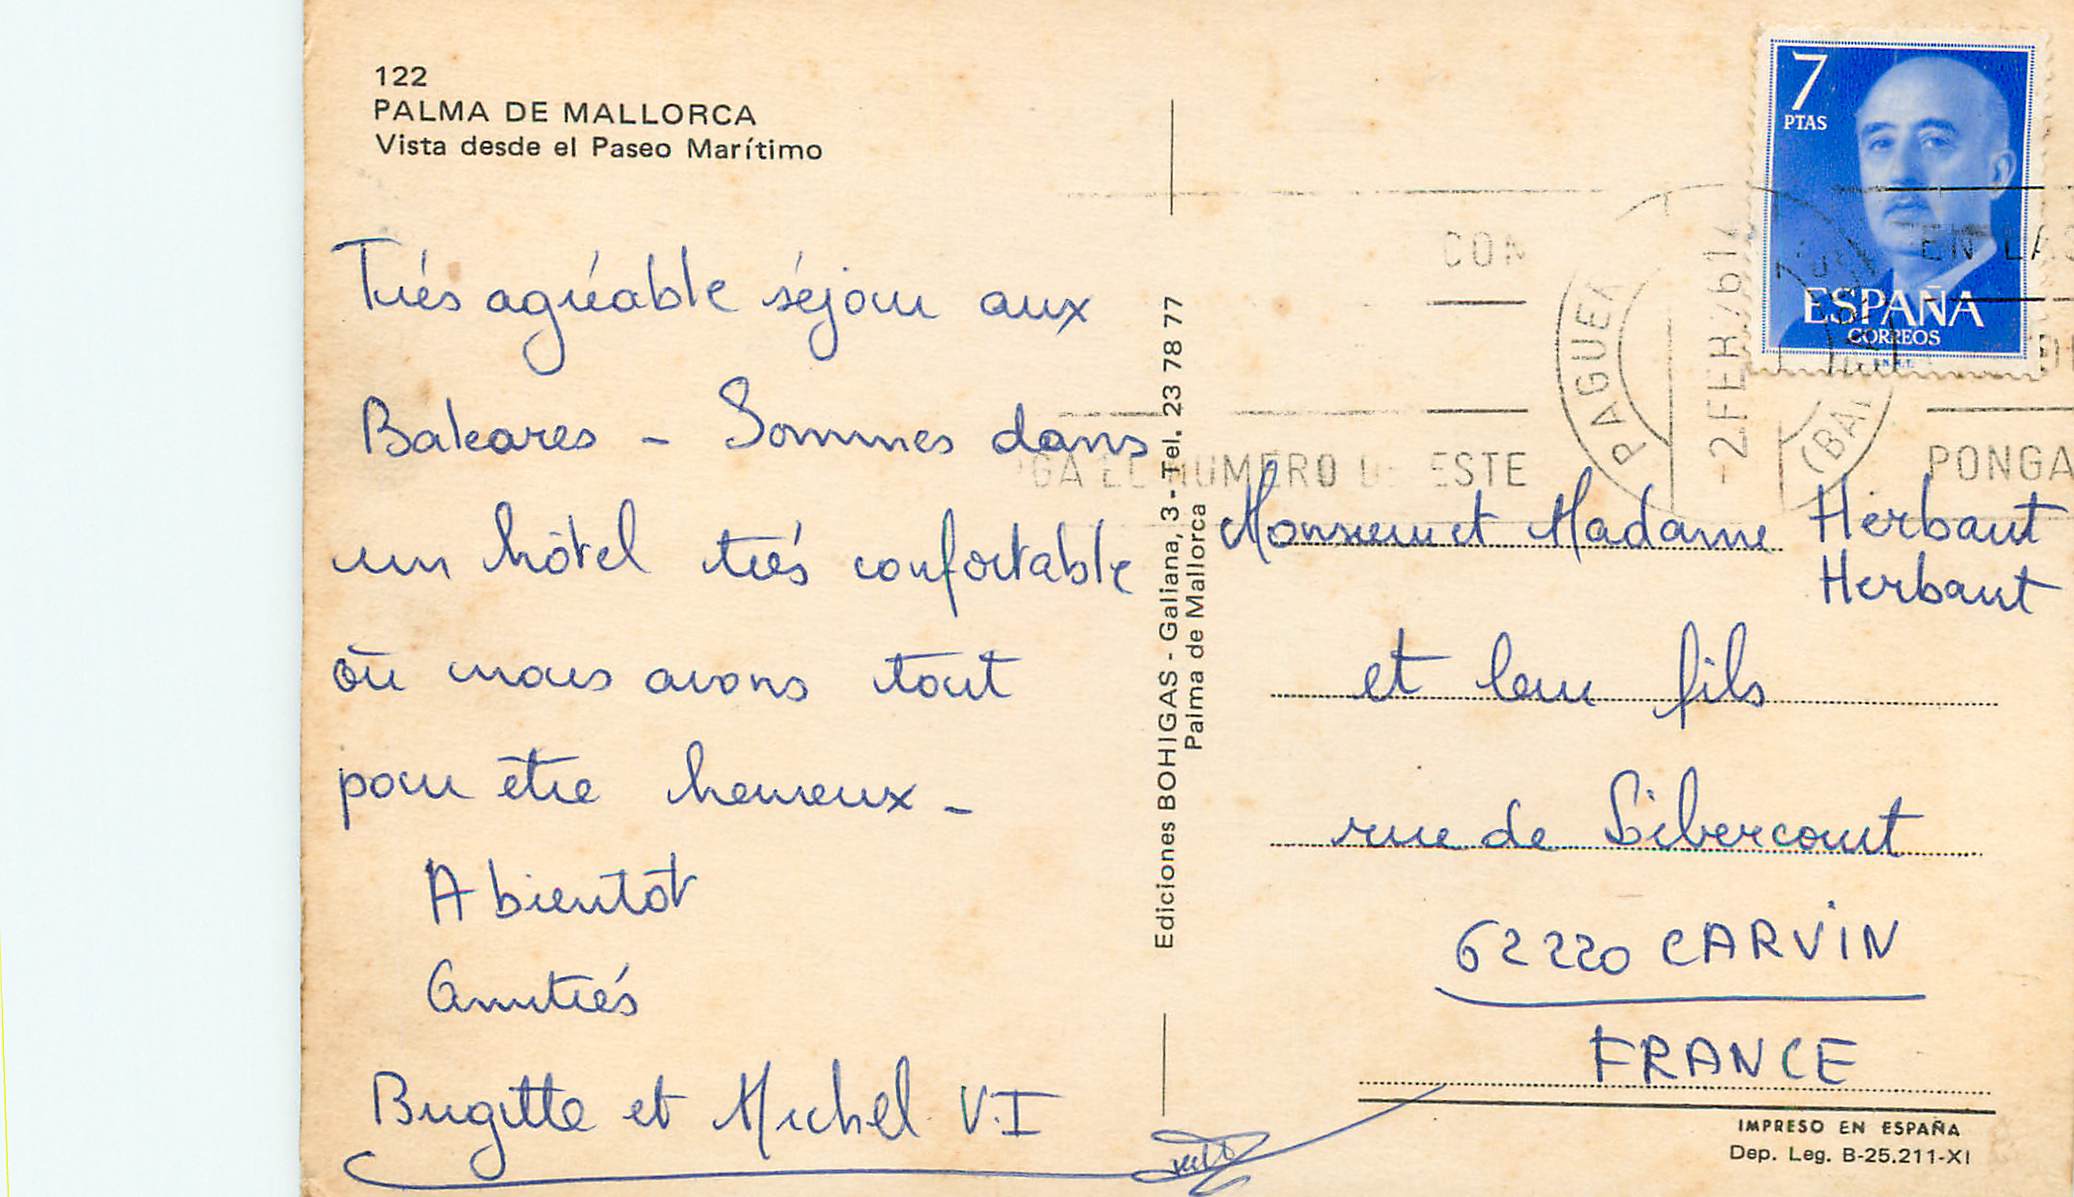 122
PALMA DE MALLORCA
Vista desde el Paseo Marítimo
Très agréable séjour aux
Baleares - Sommes dans
un hôtel très confortable
où nous avons tout
pour être heureux -
A bientôt
Amitiés
Brigitte et Michel V.I
Ediciones BOHIGAS - Galiana, 3 - Tel. 23 78 77
Palma de Mallorca
7
PTAS
ESPAÑA
CORREOS
CON
EN LAS
PAGUERA
-2 FEB 76
(BA
GA EL NUMERO DE ESTE
PONGA
Monsieur et Madame Herbaut
Herbaut
et leur fils
rue de Libercourt
62220 CARVIN
FRANCE
IMPRESO EN ESPAÑA
Dep. Leg. B-25.211-XI